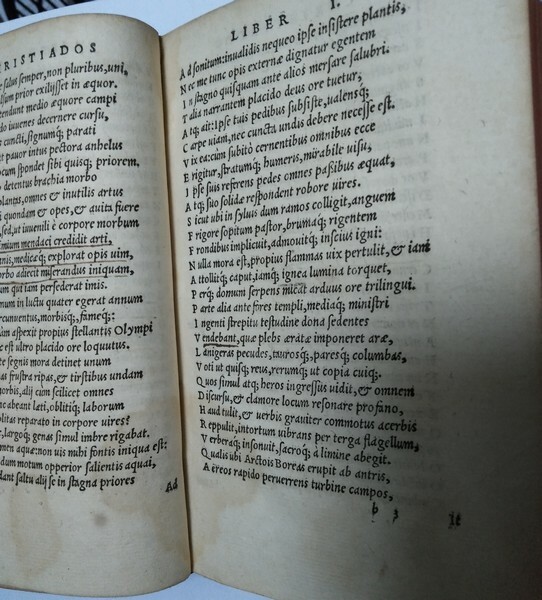 RISTIADOS
e salus semper, non pluribus, uni,
sum prior exilijsset in æquor.
tendunt medio æquore campi
do iuuenes decernere cursu,
s cuncti, signumq; parati
et pauor intus pectora anhelus
cum spondet sibi quisq; priorem.
o detentus brachia morbo
plantas, omnes & inutilis artus
i quondam & opes, & auita fuere
sed, ut iuuenili è corpore morbum
imium mendaci credidit arti,
mnis, medicaq; explorat opis uim,
orbo adiecit miserandus iniquam,
um qui iam perfederat imis.
monum in luctu quater egerat annum
rcunuentus, morbisq;, fameq;:
am aspexit propius stellantis Olympi
ce est ultro placido ore loquutus.
te segnis mora detinet unum
as frustra ripas, & tristibus undam
morbis, alij cum scilicet omnes
nc abeant læti, oblitiq; laborum
olitas reparato in corpore uires?
r, largoq; genas simul imbre rigabat.
men aquæ: non uis mihi fontis iniqua est:
dum motum opperior salientis aquai,
dant saltu alij se in stagna priores
Ad
LIBER I.
Ad sonitum: inualidis nequeo ipse insistere plantis,
Nec me tunc opis externæ dignatur egentem
In stagno quisquam ante alios mersare salubri.
Talia narrantem placido deus ore tuetur,
Atq; ait: Ipse tuis pedibus subsiste, ualensq;
Carpe uiam, nec cuncta undis debere necesse est.
Vix ea: cùm subitò cernentibus omnibus ecce
Erigitur, stratumq; humeris, mirabile uisu,
Ipse suis referens pedes omnes passibus æquat,
Atq; suo solidæ respondent robore uires.
Sicut ubi in syluis dum ramos colligit, anguem
Frigore sopitum pastor, brumaq; rigentem
Frondibus implicuit, admouitq; inscius igni:
Nulla mora est, propius flammas uix pertulit, & iam
Attollitq; caput, iamq; ignea lumina torquet,
Perq; domum serpens micat arduus ore trilingui.
Parte alia ante fores templi, mediaq; ministri
Ingenti strepitu testudine dona sedentes
Vendebant, quæ plebs æratæ imponeret aræ,
Lanigeras pecudes, taurosq;, paresq; columbas,
Voti ut quisq; reus, rerumq; ut copia cuiq;.
Quos simul atq; heros ingressus uidit, & omnem
Discursu, & clamore locum resonare profano,
Haud tulit, & uerbis grauiter commotus acerbis
Reppulit, intortum uibrans per terga flagellum,
Verberaq; insonuit, sacroq; à limine abegit.
Qualis ubi Arctois Boreas erupit ab antris,
Aëreos rapido peruerrens turbine campos,
b 3 it